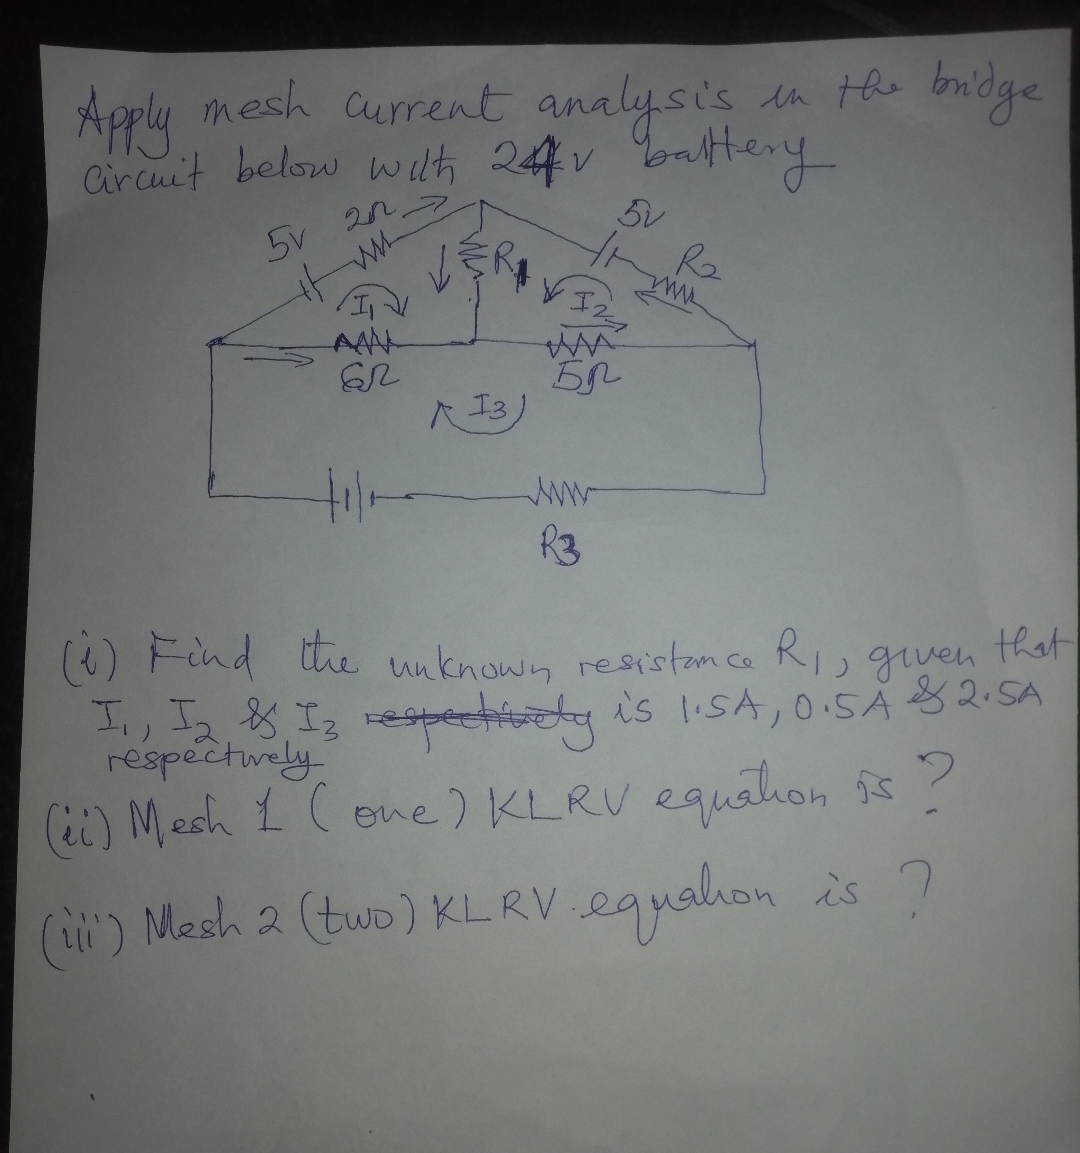 Apply mesh current analysis in the bridge
circuit below with 24v battery
2Ω
5v
5v
R1
R2
I1
I2
6Ω
5Ω
I3
R3
(i) Find the unknown resistance R1, given that
I1, I2 & I3 respectively is 1.5A, 0.5A & 2.5A
respectively
(ii) Mesh 1 (one) KLRV equation is ?
(iii) Mesh 2 (two) KLRV equation is ?